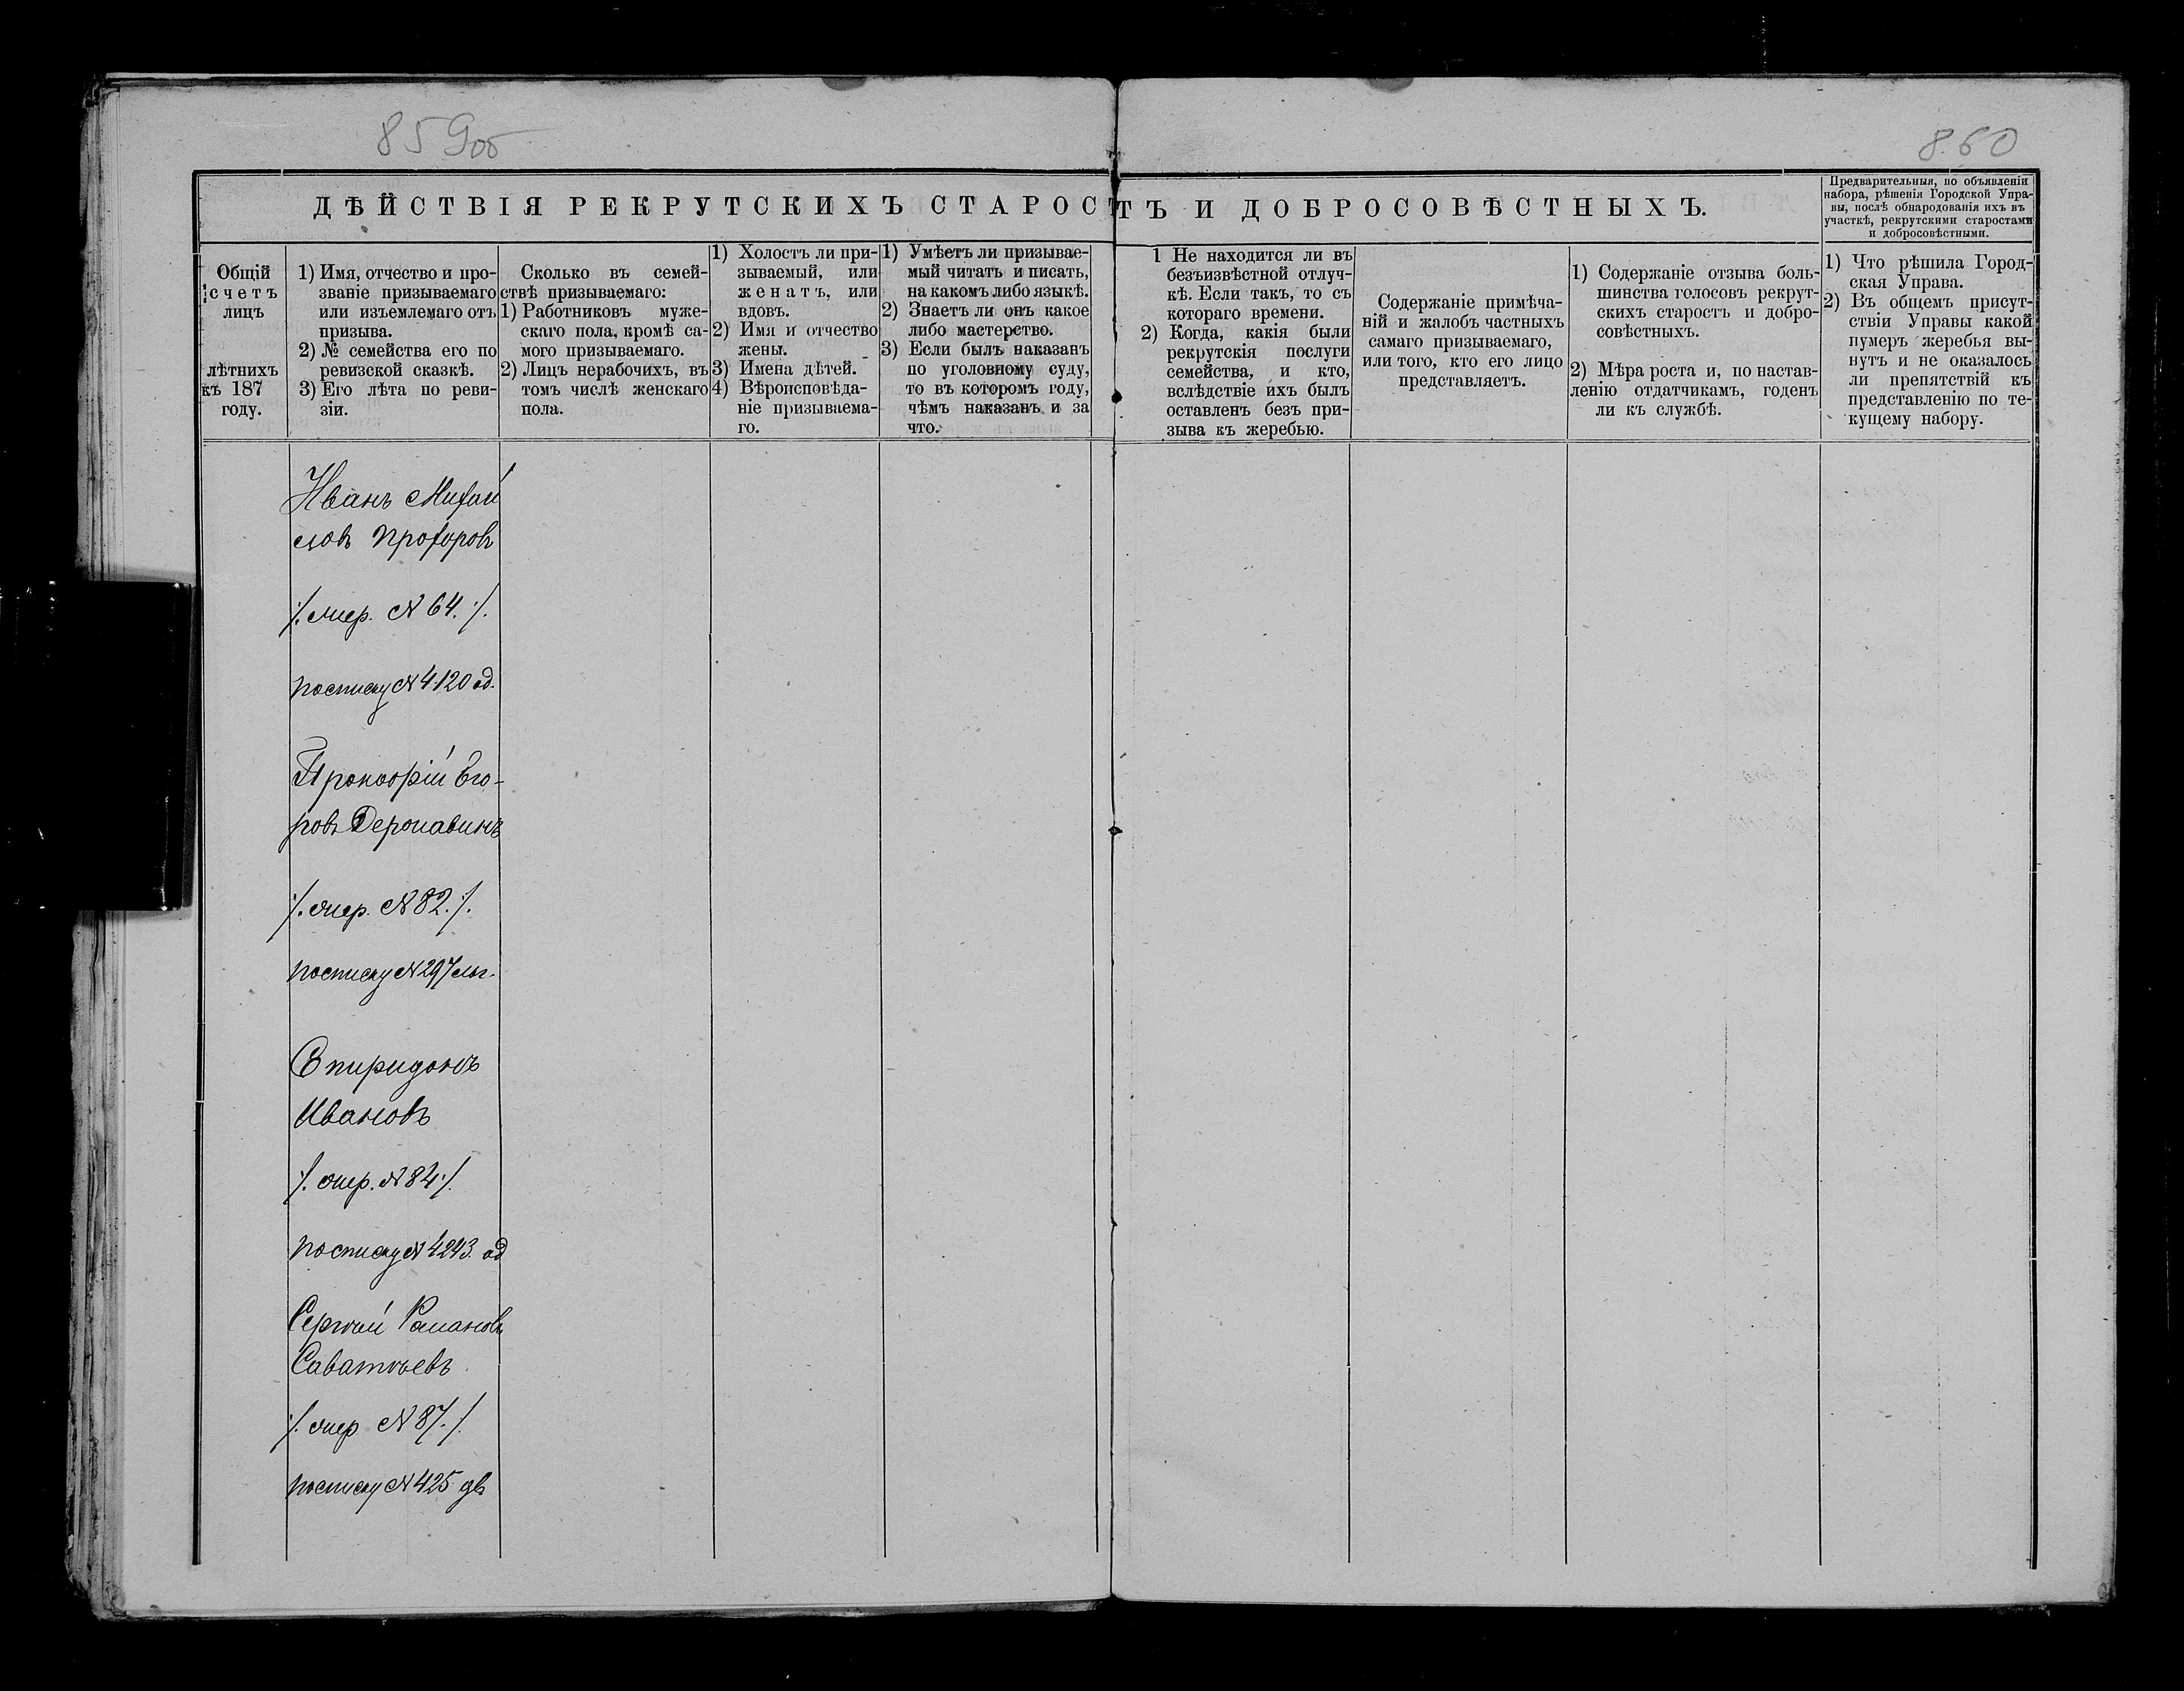 859об
860
ДѢЙСТВІЯ РЕКРУТСКИХЪ СТАРОСТЪ И ДОБРОСОВѢСТНЫХЪ.
Предварительныя, по объявленіи
набора, рѣшенія Городской Упра-
вы, послѣ обнародованія ихъ въ
участкѣ, рекрутскими старостами
и добросовѣстными.
Общій
счетъ
лицъ
лѣтнихъ
къ 187
году.
1) Имя, отчество и про-
званіе призываемаго
или изъемлемаго отъ
призыва.
2) № семейства его по
ревизской сказкѣ.
3) Его лѣта по реви-
зіи.
Сколько въ семей-
ствѣ призываемаго:
1) Работниковъ муже-
скаго пола, кромѣ са-
мого призываемаго.
2) Лицъ нерабочихъ, въ
томъ числѣ женскаго
пола.
1) Холостъ ли при-
зываемый, или
женатъ, или
вдовъ.
2) Имя и отчество
жены.
3) Имена дѣтей.
4) Вѣроисповѣда-
ніе призываема-
го.
1) Умѣетъ ли призывае-
мый читать и писать,
на какомъ либо языкѣ.
2) Знаетъ ли онъ какое
либо мастерство.
3) Если былъ наказанъ
по уголовному суду,
то въ которомъ году,
чѣмъ наказанъ и за
что.
1 Не находится ли въ
безъизвѣстной отлуч-
кѣ. Если такъ, то съ
котораго времени.
2) Когда, какія были
рекрутскія послуги
семейства, и кто,
вслѣдствіе ихъ былъ
оставленъ безъ при-
зыва къ жеребью.
Содержаніе примѣча-
ній и жалобъ частныхъ
самаго призываемаго,
или того, кто его лицо
представляетъ.
1) Содержаніе отзыва боль-
шинства голосовъ рекрут-
скихъ старостъ и добро-
совѣстныхъ.
2) Мѣра роста и, по настав-
ленію отдатчикамъ, годенъ
ли къ службѣ.
1) Что рѣшила Город-
ская Управа.
2) Въ общемъ присут-
ствіи Управы какой
нумеръ жеребья вы-
нутъ и не оказалось
ли препятствій къ
представленію по те-
кущему набору.
Иванъ Михай
ловъ Прохоровъ
/. жер. № 64. /.
по списку № 4120 од.
Прокофій Его-
ровъ Державинъ
/. жер. № 82. /.
по списку № 297 льг.
Спиридонъ
Ивановъ
/. жер. № 84 /.
по списку № 4243. од
Сергѣй Романовъ
Саватѣевъ
/. жер № 87. /.
по списку № 425 дв